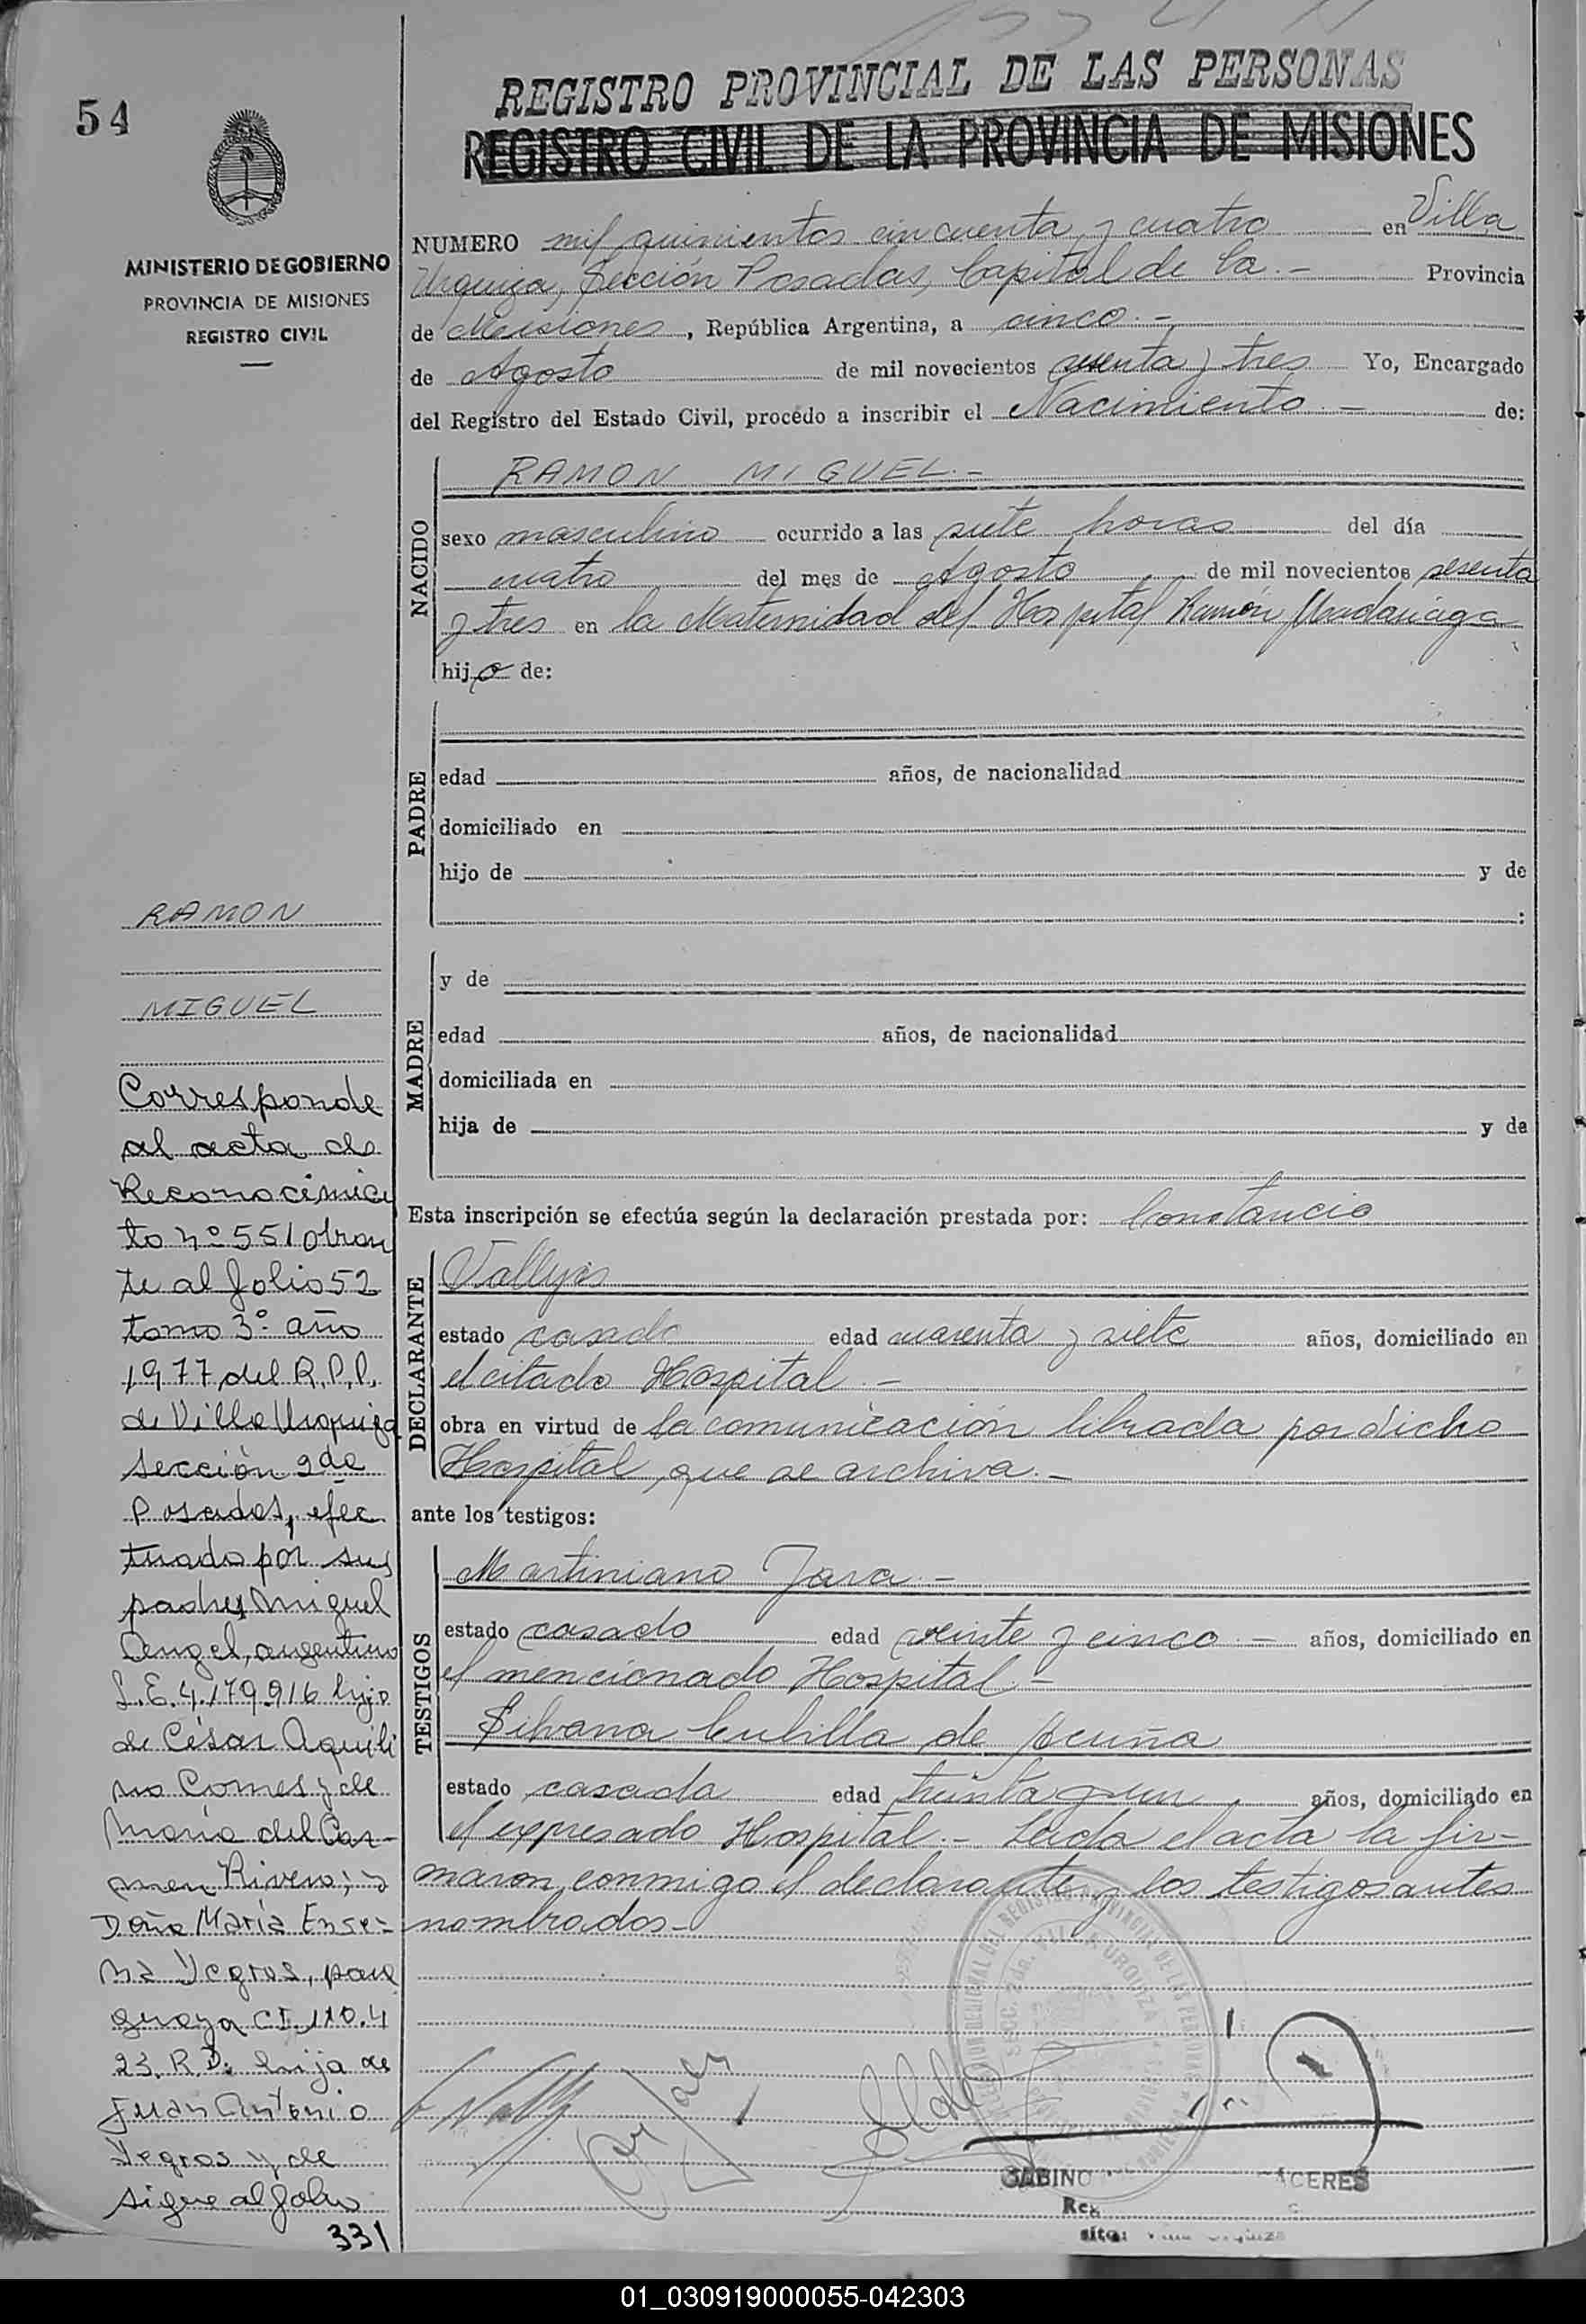 54
REGISTRO PROVINCIAL DE LAS PERSONAS
REGISTRO CIVIL DE LA PROVINCIA DE MISIONES
MINISTERIO DE GOBIERNO
PROVINCIA DE MISIONES
REGISTRO CIVIL
NUMERO mil quinientos cincuenta y cuatro en Villa
Urquiza, Sección Posadas, Capital de la.- Provincia
de Misiones, República Argentina, a cinco.-
de Agosto de mil novecientos sesenta y tres Yo, Encargado
del Registro del Estado Civil, procedo a inscribir el Nacimiento.- de:
NACIDO
RAMON MIGUEL.-
sexo masculino ocurrido a las siete horas del día
cuatro del mes de Agosto de mil novecientos sesenta
y tres en la Maternidad del Hospital Ramón Madariaga
hijo de:
PADRE
edad años, de nacionalidad
domiciliado en
hijo de y de
:
MADRE
y de
edad años, de nacionalidad
domiciliada en
hija de y de
Esta inscripción se efectúa según la declaración prestada por: Constancio
DECLARANTE
Vallejos
estado casado edad cuarenta y siete años, domiciliado en
el citado Hospital.-
obra en virtud de la comunicación librada por dicho
Hospital, que se archiva.-
ante los testigos:
TESTIGOS
Martiniano Jara.-
estado casado edad veinte y cinco.- años, domiciliado en
el mencionado Hospital.-
Silvana Cubilla de Acuña
estado casada edad treinta y un años, domiciliado en
el expresado Hospital.- Leida el acta la fir-
maron conmigo el declarante y los testigos antes
nombrados.-
RAMON
MIGUEL
Corresponde
al acta de
Reconocimien
to nº 551 obran
te al folio 52
tomo 3º año
1977 del R.P.P.
de Villa Urquiza
Sección 2da
Posadas, efec
tuado por sus
padres Miguel
Angel, argentino
L.E. 4.179.916 hijo
de César Aquili
no Comes y de
María del Car-
men Rivero; y
Doña María
Yegros, para
guaya C.I. 110.4
23. R.P. hija de
Juan Antonio
Yegros y de
sigue al folio
331
SABINO CERES
01_030919000055-042303